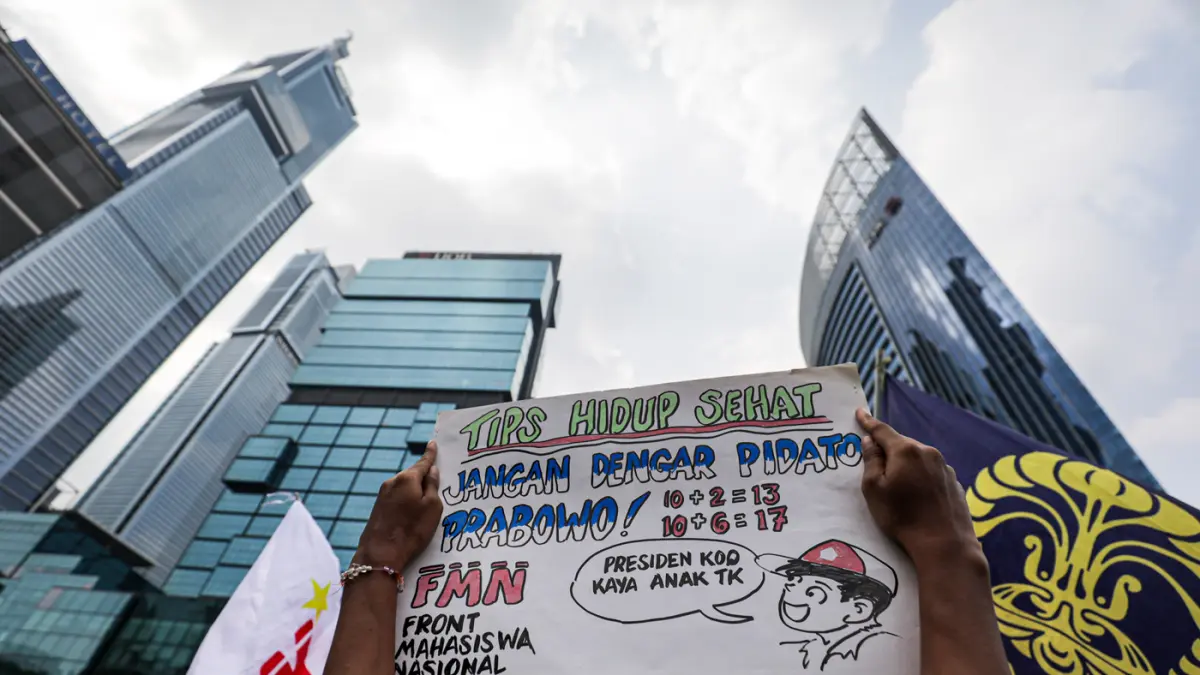 TIPS HIDUP SEHAT
JANGAN DENGAR PIDATO
PRABOWO!
10+2=13
10+6=17
PRESIDEN KOQ
KAYA ANAK TK
FMN
FRONT
MAHASISWA
NASIONAL